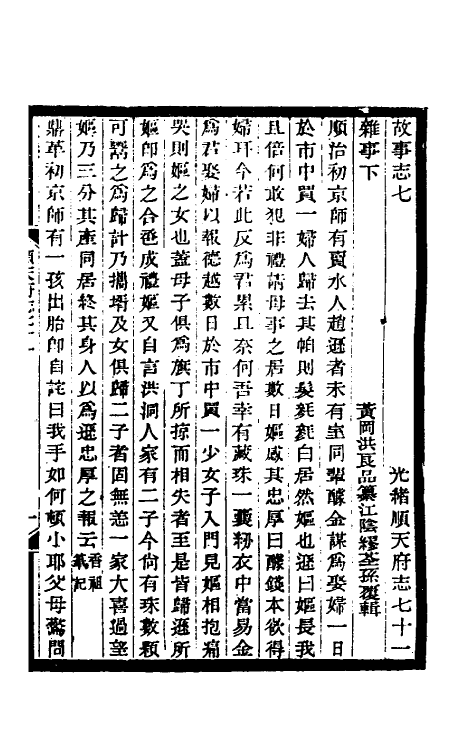 光緒順天府志七十一
故事志七
黃岡洪良品纂江陰繆荃孫覆輯
雜事下
順治初京師有賣水人趙遜者未有室同輩醵金謀爲娶婦一日
於市中買一婦人歸去其帕則髮毿毿白居然嫗也遜曰嫗長我
且倍何敢犯非禮請母事之居數日嫗感其忠厚曰醵錢本欲得
婦耳今若此反爲君累且奈何吾幸有藏珠一囊紉衣中當易金
爲君娶婦以報德越數日於市中買一少女子入門見嫗相抱痛
哭則嫗之女也蓋母子俱爲旗丁所掠而相失者至是皆歸遜所
嫗卽爲之合巹成禮嫗又自言洪洞人家有二子今尙有珠數顆
可鬻之爲歸計乃攜壻及女俱歸二子者固無恙一家大喜過望
嫗乃三分其產同居終其身人以爲遜忠厚之報云香祖筆記
鼎革初京師有一孩出胎卽自詫曰我手如何頓小耶父母驚問